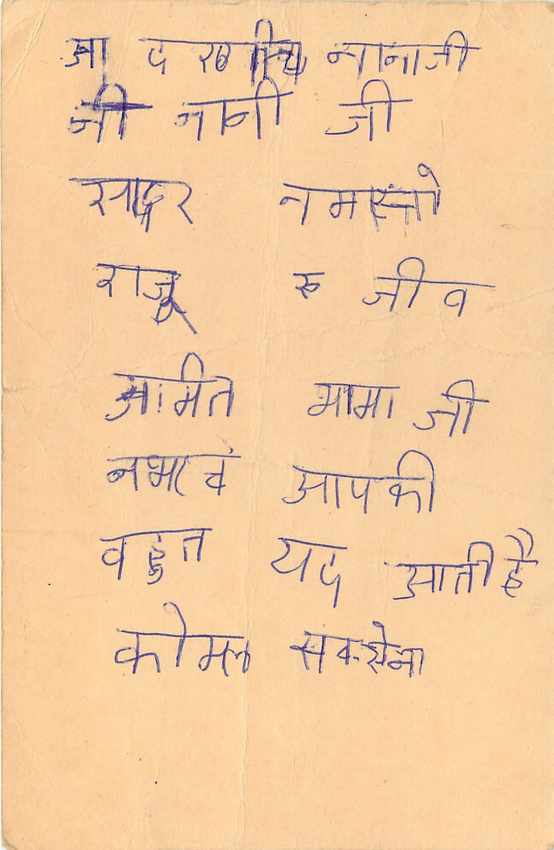 आदरणीय नानाजी
नी नानी जी
सादर नमस्ते
राजू रू जीव
अमित मामा जी
आपकी
वहुत यद आती है
कोमल सकसेना